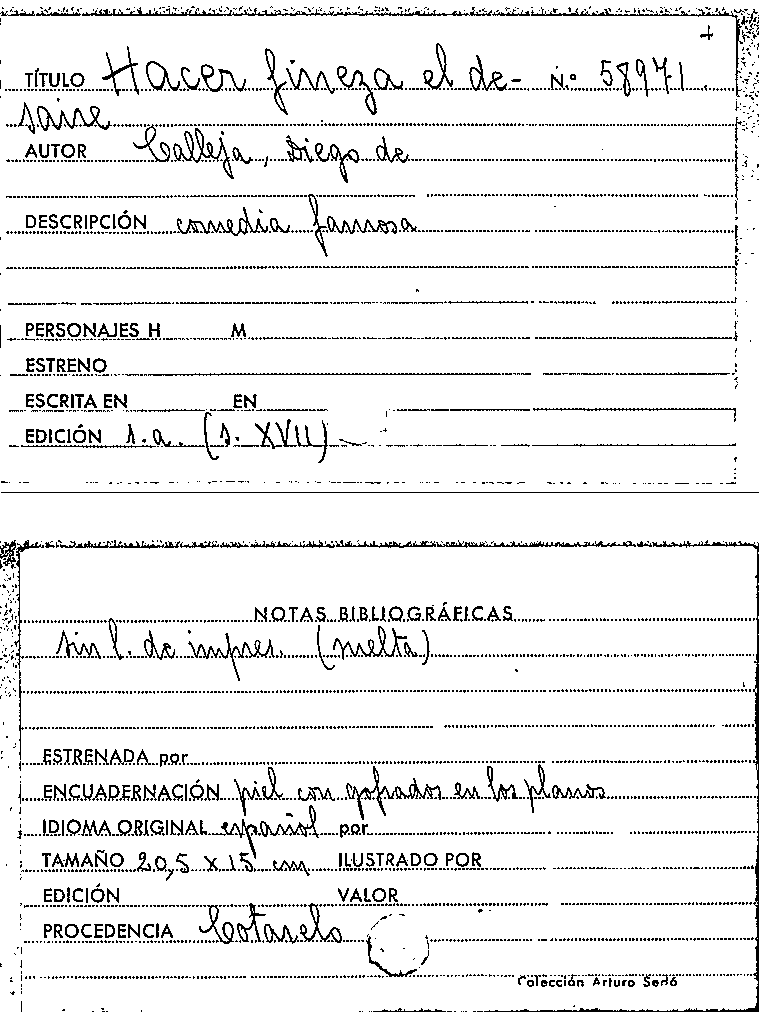 +
TÍTULO Hacer fineza el de- N.º 58971
saire
AUTOR Calleja, Diego de
DESCRIPCIÓN comedia famosa
PERSONAJES H M
ESTRENO
ESCRITA EN EN
EDICIÓN s.a. (s. XVII)
NOTAS BIBLIOGRÁFICAS
sin l. de impres. (suelta)
ESTRENADA por
ENCUADERNACIÓN piel con gofrados en los planos
IDIOMA ORIGINAL español por
TAMAÑO 20,5 x 15 cm ILUSTRADO POR
EDICIÓN VALOR
PROCEDENCIA Cotarelo
Colección Arturo Sedó